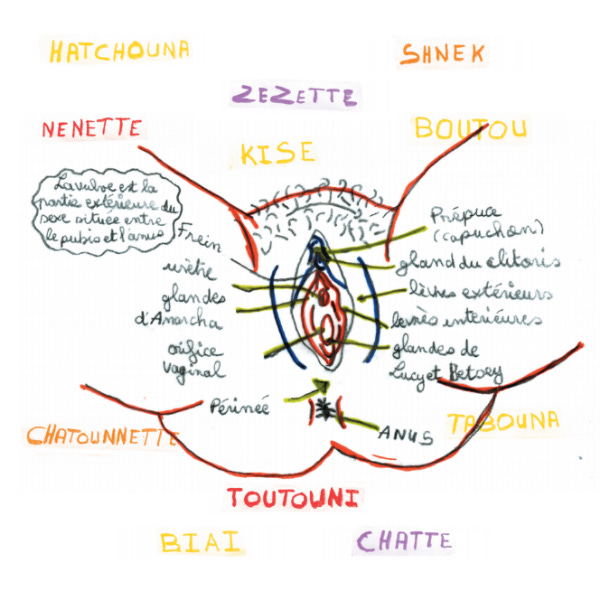 HATCHOUNA
SHNEK
ZEZETTE
NENETTE
BOUTOU
KISE
La vulve est la
partie extérieure du
sexe située entre
le pubis et l'anus
Frein
urètre
glandes
d'Anarcha
orifice
vaginal
Périnée
Prépuce
(capuchon)
gland du clitoris
lèvres extérieurs
lèvres intérieures
glandes de
Lucy et Betsey
ANUS
CHATOUNNETTE
TABOUNA
TOUTOUNI
BIAI
CHATTE